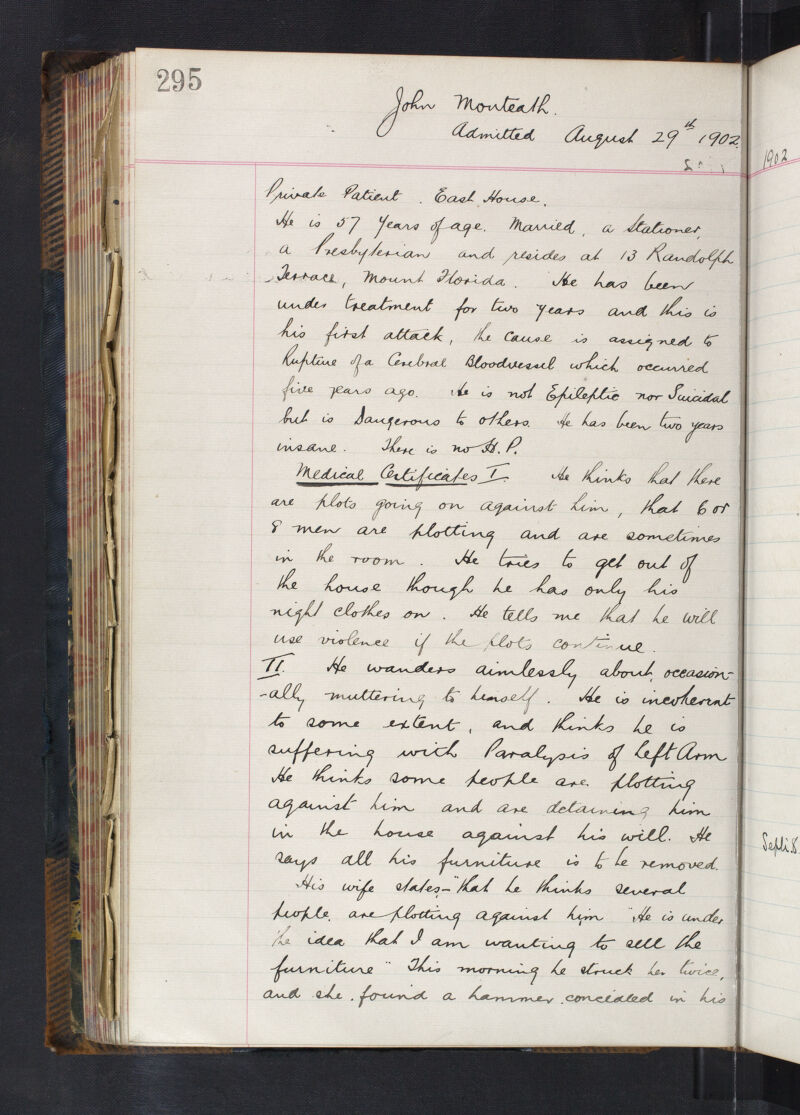 295
John Monteath.
Admitted August 29th 1902.
1902
Private Patient. East House.
He is 57 years of age. Married, a Stationer,
a Presbyterian and resides at 13 Randolph
Terrace, Mount Florida. He has been
under treatment for two years and this is
his first attack, the cause is assigned to
Rupture of a Cerebral Bloodvessel which occurred
five years ago. He is not Epileptic nor Suicidal
but is Dangerous to others. He has been two years
insane. There is no H.P.
Medical Certificates I. He thinks that there
are plots going on against him, that 6 or
8 men are plotting and are sometimes
in the room. He tries to get out of
the house though he has only his
night clothes on. He tells me that he will
use violence if the plots continue.
II. He wanders aimlessly about, occasion-
-ally muttering to himself. He is incoherent
to some extent, and thinks he is
suffering with Paralysis of Left Arm
He thinks some people are plotting
against him and are detaining him
in the house against his will. He
says all his furniture is to be removed.
His wife states:- "that he thinks several
people are plotting against him "He is under
the idea that I am wanting to sell the
furniture" This morning he struck her twice,
and she found a hammer concealed in his
Sept. 8